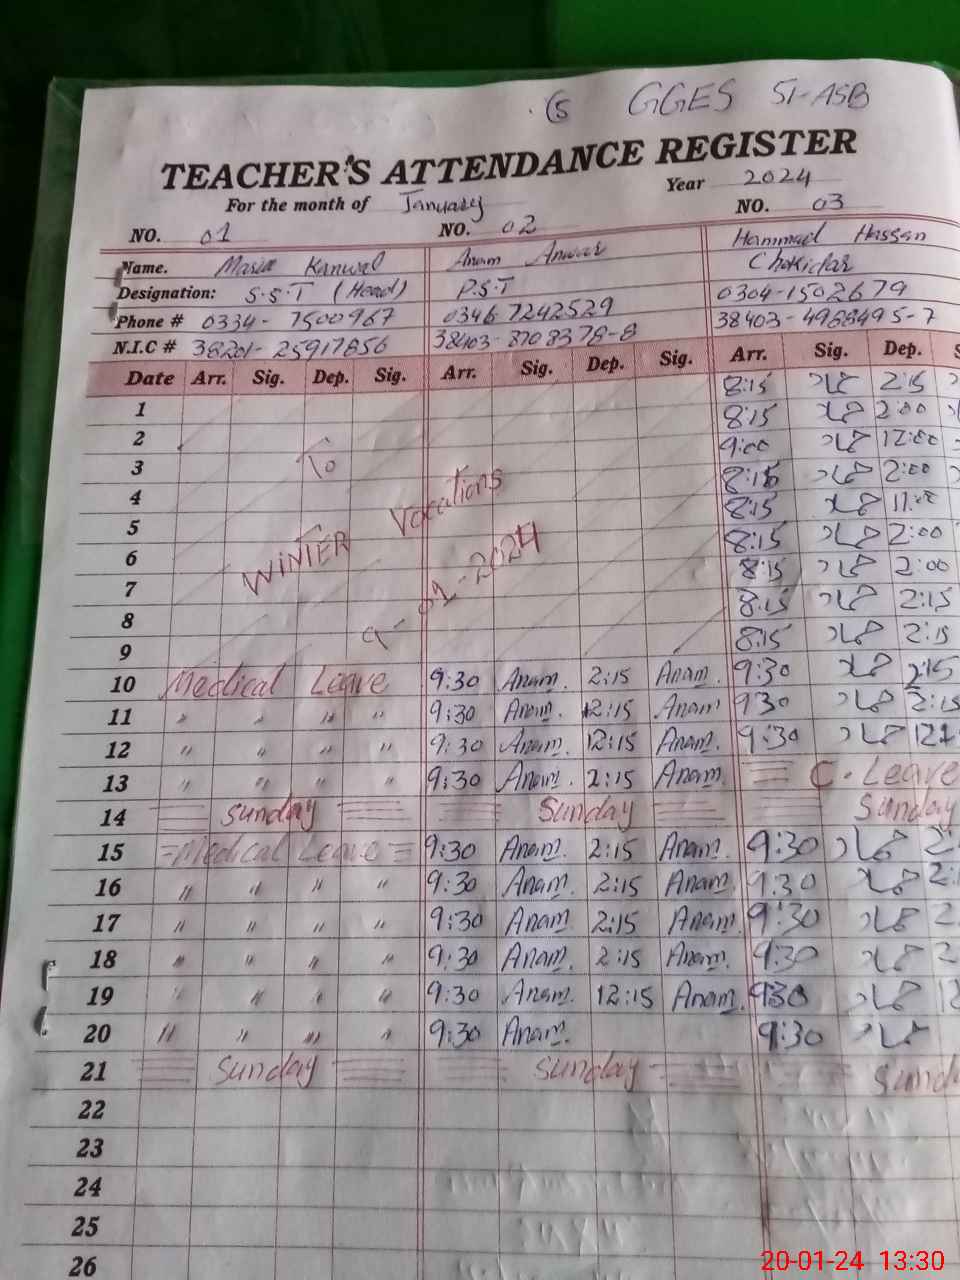 (5 GGES 51-ASB
TEACHER'S ATTENDANCE REGISTER
For the month of January Year 2024
NO. 01 NO. 02 NO. 03
Name. Maria Kanwal Anam Anwar Hammad Hassan
Designation: S.S.T (Head) P.S.T Chokidar
Phone # 0334-7500967 0346 7242529 0304-1502679
N.I.C # 38201-25917856 38403-8708378-8 38403-4988495-7
Date Arr. Sig. Dep. Sig. Arr. Sig. Dep. Sig. Arr. Sig. Dep. S
8:15 2:15
1 8:15 2:00
2 9:00 12:00
3 To 8:15 2:00
4 Vocations 8:15
5 8:15 2:00
6 WINTER 8:15 2:00
7 9-01-2024 8:15 2:15
8 8:15 2:15
9
10 Medical Leave 9:30 Anam. 2:15 Anam. 9:30 2:15
11 " " " " 9:30 Anam. 2:15 Anam 9:30 2:15
12 " " " " 9:30 Anam. 12:15 Anam. 9:30
13 " " " " 9:30 Anam. 2:15 Anam. C. Leave
14 Sunday Sunday Sunday
15 Medical Leave 9:30 Anam. 2:15 Anam. 9:30 2:
16 " " " " 9:30 Anam. 2:15 Anam. 9:30 2:
17 " " " " 9:30 Anam. 2:15 Anam. 9:30 2
18 " " " " 9:30 Anam. 2:15 Anam. 9:30 2
19 " " " " 9:30 Anam. 12:15 Anam. 9:30 12
20 " " " " 9:30 Anam. 9:30
21 Sunday Sunday Sund
22
23
24
25
26
20-01-24 13:30